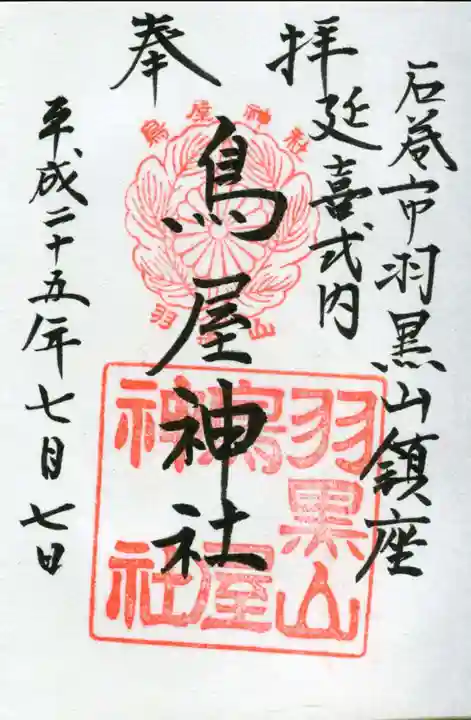 石巻市羽黒山鎮座
延喜式内
奉拝
鳥屋神社
平成二十五年七月七日
鳥屋神社
羽黒山
羽黒山
鳥屋
神社